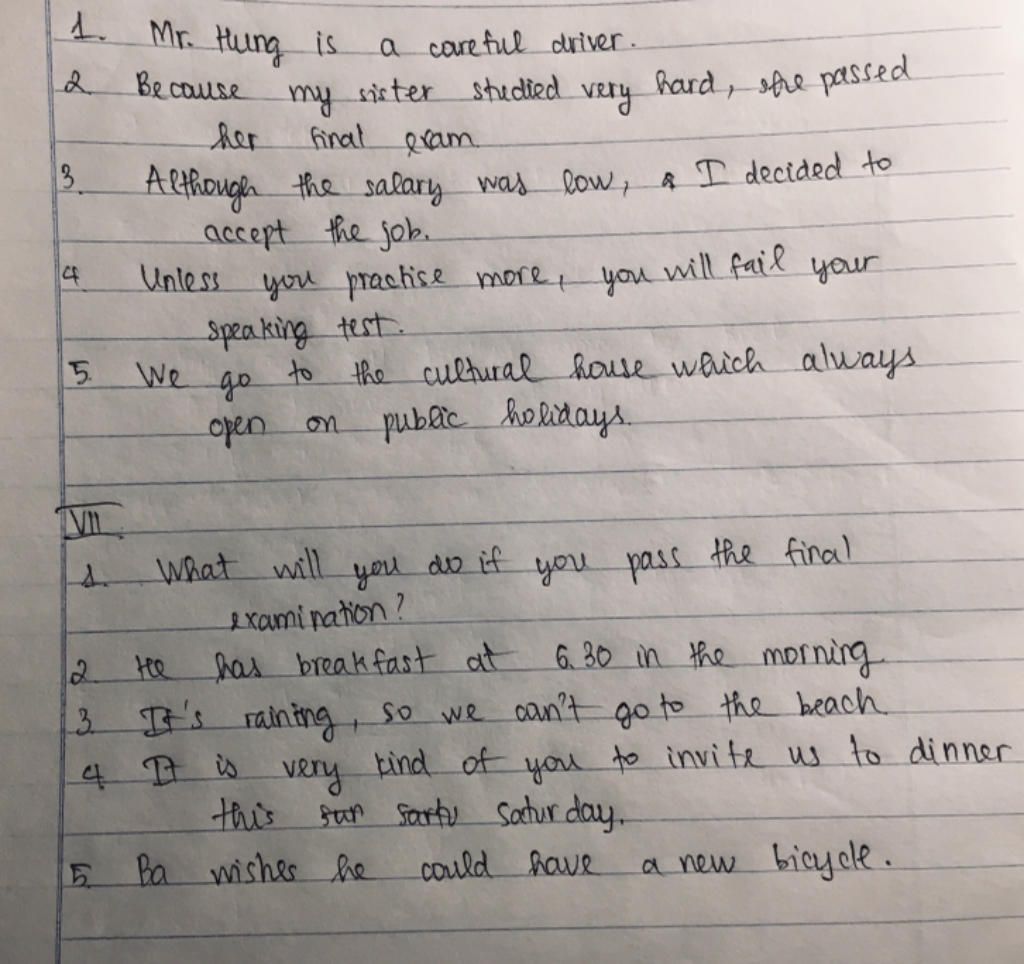 1. Mr. Hung is a careful driver.
2 Because my sister studied very hard, she passed
her final exam
3. Although the salary was low, I decided to
accept the job.
4 Unless you practise more, you will fail your
speaking test.
5. We go to the cultural house which always
open on public holidays.
VII
1. What will you do if you pass the final
examination?
2 He has breakfast at 6.30 in the morning
3 It's raining, so we can't go to the beach
4 It is very kind of you to invite us to dinner
this Saturday.
5. Ba wishes he could have a new bicycle.